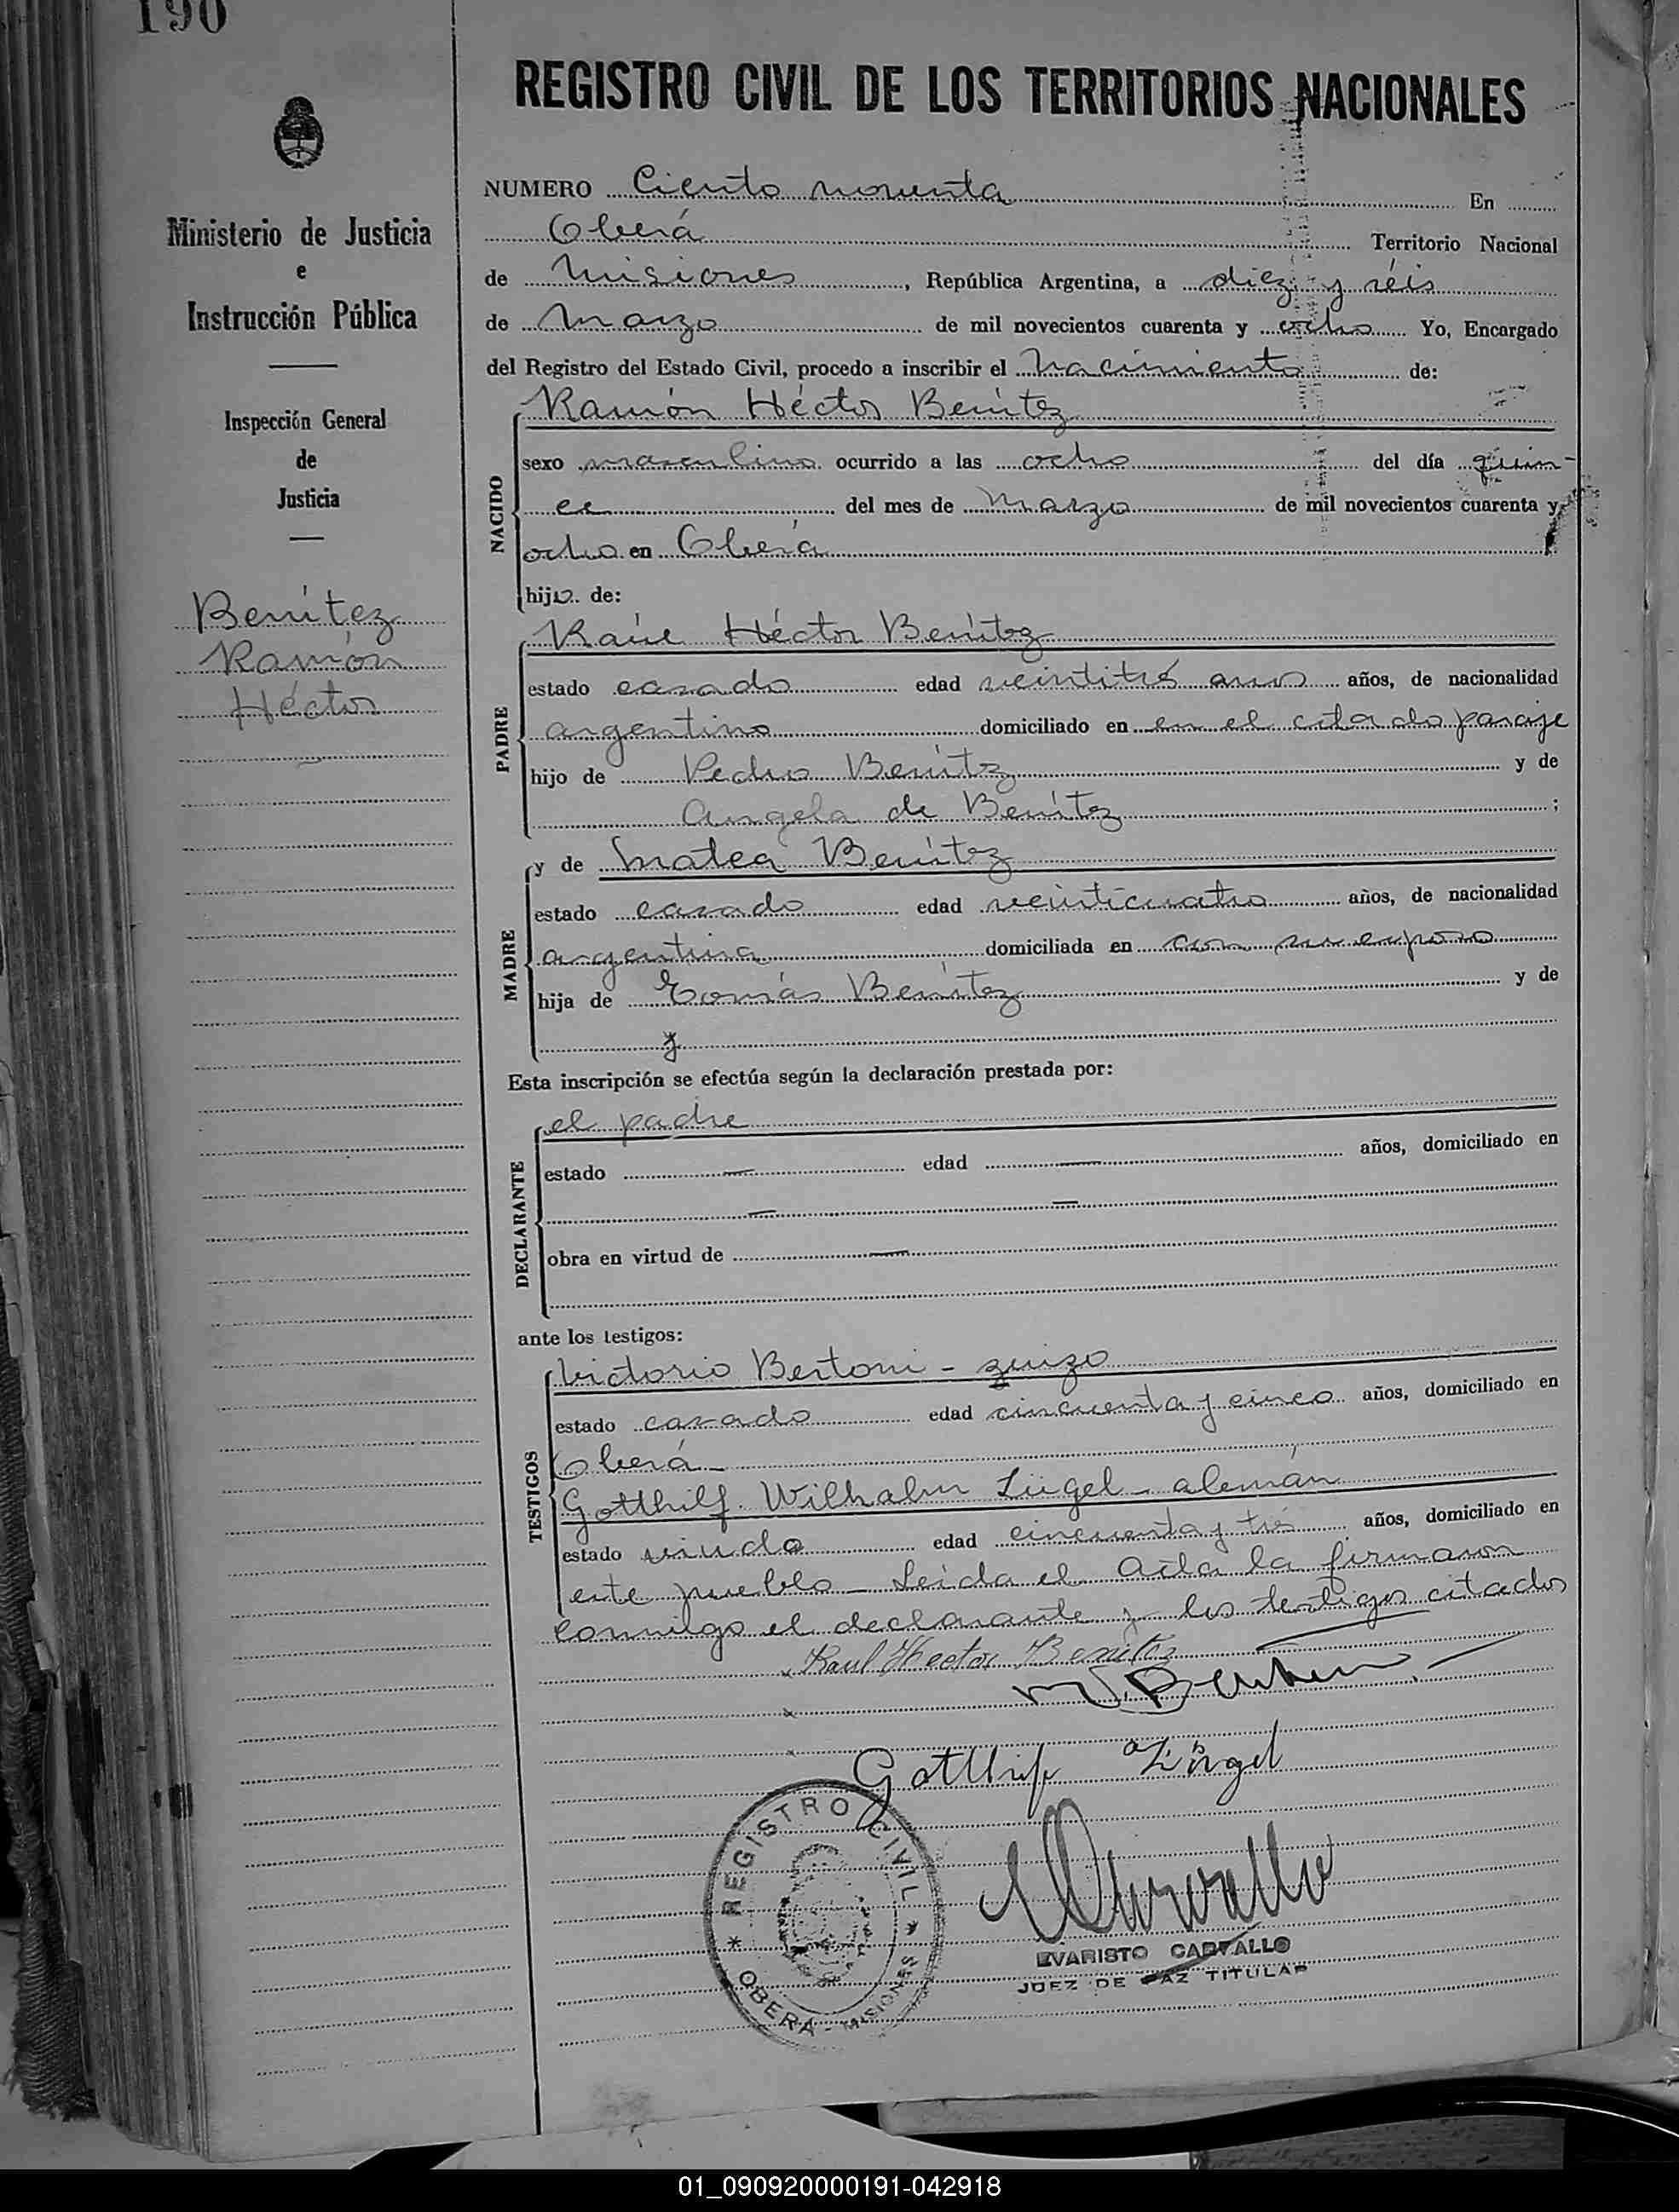 190
REGISTRO CIVIL DE LOS TERRITORIOS NACIONALES
Ministerio de Justicia
e
Instrucción Pública
Inspección General
de
Justicia
Benítez
Ramón
Héctor
NUMERO Ciento noventa En
Oberá Territorio Nacional
de Misiones, República Argentina, a diez y séis
de Marzo de mil novecientos cuarenta y ocho Yo, Encargado
del Registro del Estado Civil, procedo a inscribir el nacimiento de:
NACIDO
Ramón Héctor Benítez
sexo masculino ocurrido a las ocho del día quin-
ce del mes de Marzo de mil novecientos cuarenta y
ocho en Oberá
hijo de:
PADRE
Raúl Héctor Benítez
estado casado edad veintitrés años años, de nacionalidad
argentino domiciliado en en el citado paraje
hijo de Pedro Benítez y de
Angela de Benítez ;
MADRE
y de Matea Benítez
estado casado edad veinticuatro años, de nacionalidad
argentina domiciliada en con su esposo
hija de Tomás Benítez y de
Esta inscripción se efectúa según la declaración prestada por:
DECLARANTE
el padre
estado — edad — años, domiciliado en
— —
obra en virtud de —
ante los testigos:
TESTIGOS
Victorio Bertoni - zuizo
estado casado edad cincuenta y cinco años, domiciliado en
Oberá -
Gotthilf Wilhalm Zügel - alemán
estado viudo edad cincuenta y tré años, domiciliado en
este pueblo - Leida el Acta la firmaron
conmigo el declarante y los testigos citados
Raul Hector Benitez
Gotthilf Zügel
REGISTRO CIVIL
* OBERA - MISIONES *
EVARISTO CARVALLO
JUEZ DE PAZ TITULAR
01_090920000191-042918